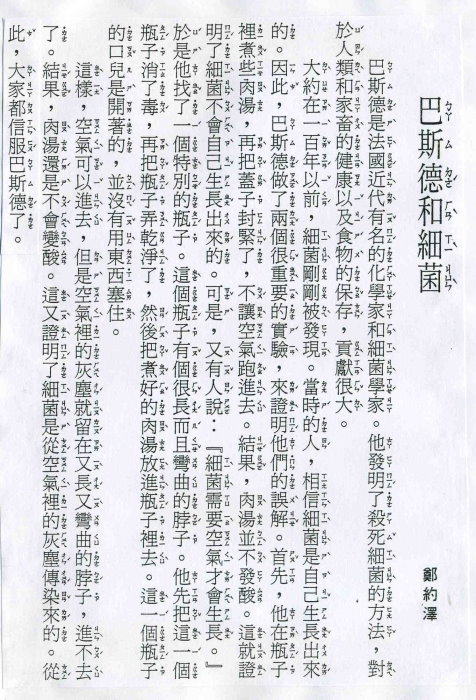 巴斯德和細菌
鄭約澤
巴斯德是法國近代有名的化學家和細菌學家。他發明了殺死細菌的方法，對
於人類和家畜的健康以及食物的保存，貢獻很大。
大約在一百年以前，細菌剛剛被發現。當時的人，相信細菌是自己生長出來
的。因此，巴斯德做了兩個很重要的實驗，來證明他們的誤解。首先，他在瓶子
裡煮些肉湯，再把蓋子封緊了，不讓空氣跑進去。結果，肉湯並不發酸。這就證
明了細菌不會自己生長出來的。可是，又有人說：『細菌需要空氣才會生長。』
於是他找了一個特別的瓶子。這個瓶子有個很長而且彎曲的脖子。他先把這一個
瓶子消了毒，再把瓶子弄乾淨了，然後把煮好的肉湯放進瓶子裡去。這一個瓶子
的口兒是開著的，並沒有用東西塞住。
這樣，空氣可以進去，但是空氣裡的灰塵就留在又長又彎曲的脖子，進不去
了。結果，肉湯還是不會變酸。這又證明了細菌是從空氣裡的灰塵傳染來的。從
此，大家都信服巴斯德了。